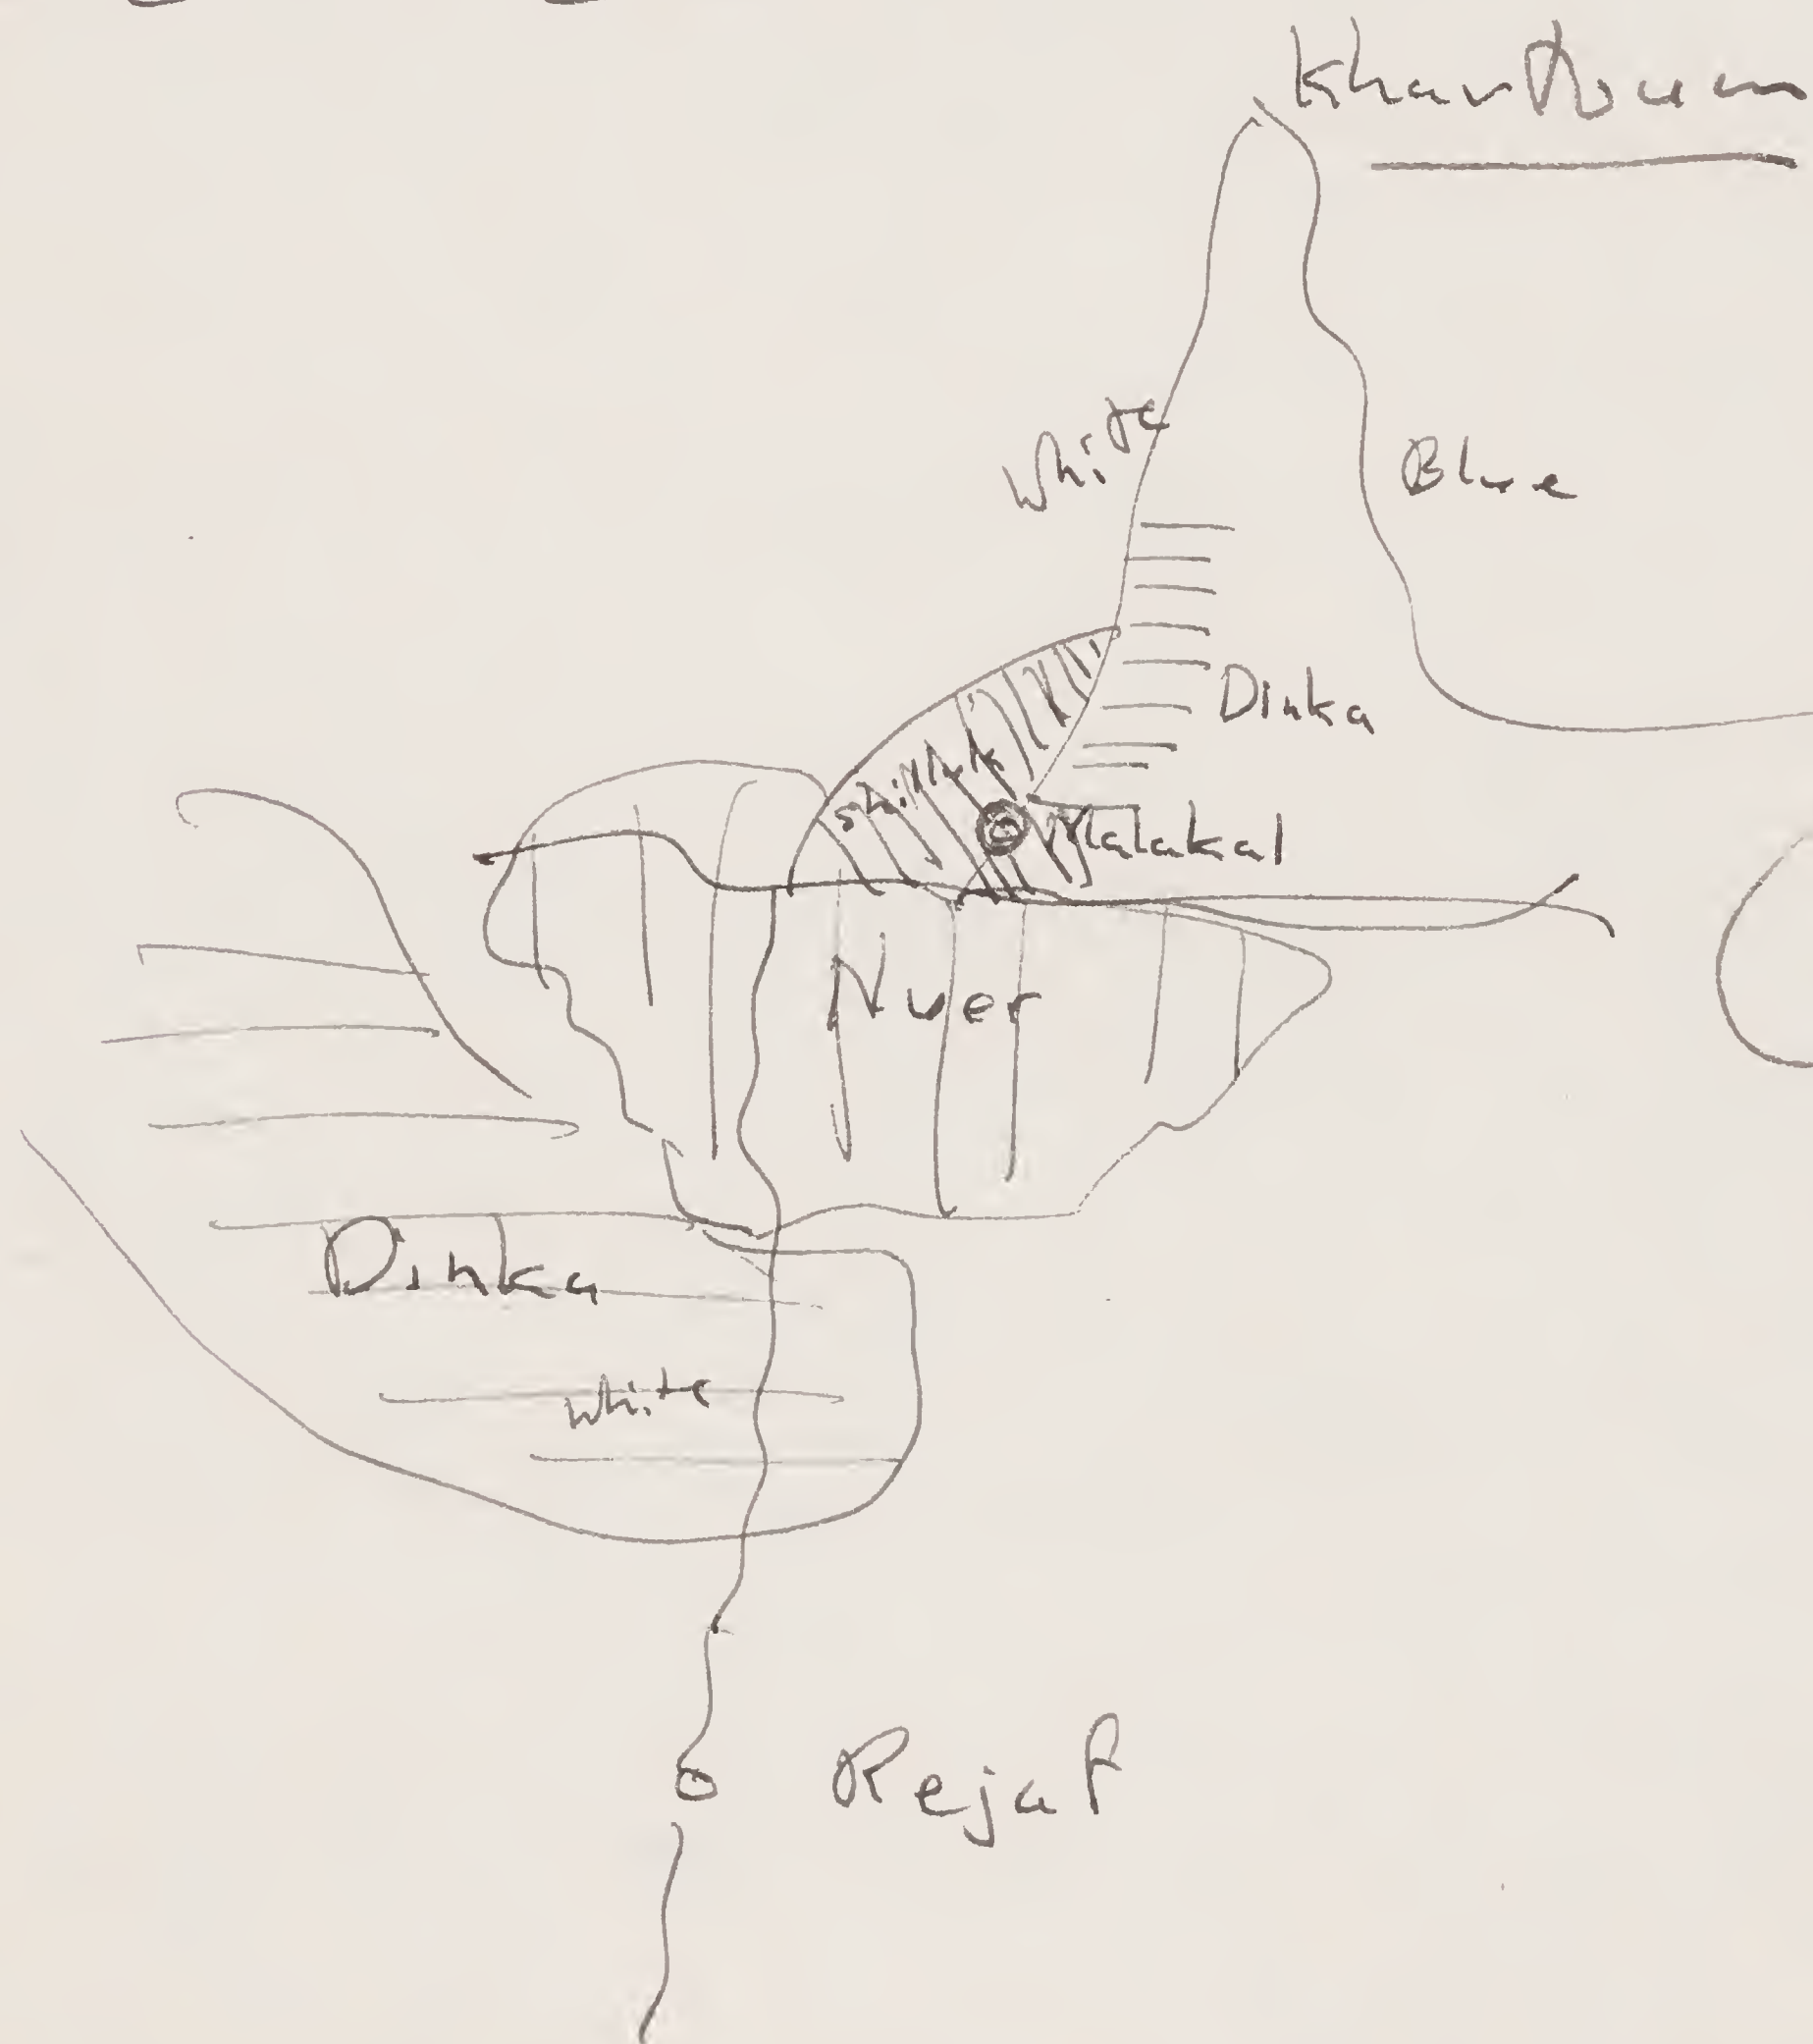 Khartoum
White
Blue
Dinka
Shilluk
Malakal
Nuer
Dinka
White
Rejaf